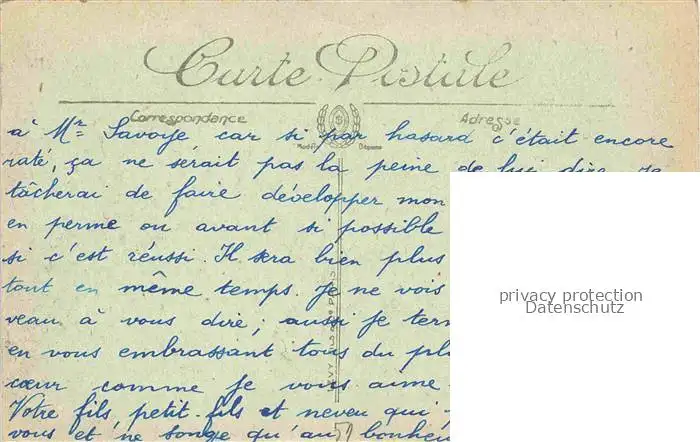 Carte Postale
Correspondance
Adresse
Modèle Déposé
à Mr Savoye car si par hasard c'était encore
raté, ça ne sérait pas la peine de lui dire. Je
tâcherai de faire développer mon
en perme ou avant si possible
si c'est réussi. Il sera bien plus
tout en même temps. Je ne vois
veau à vous dire; aussi je term
en vous embrassant tous du pl
cœur comme je vous aime
Votre fils, petit-fils et neveu qui
vous et ne songe qu'au bonheu
51
privacy protection
Datenschutz